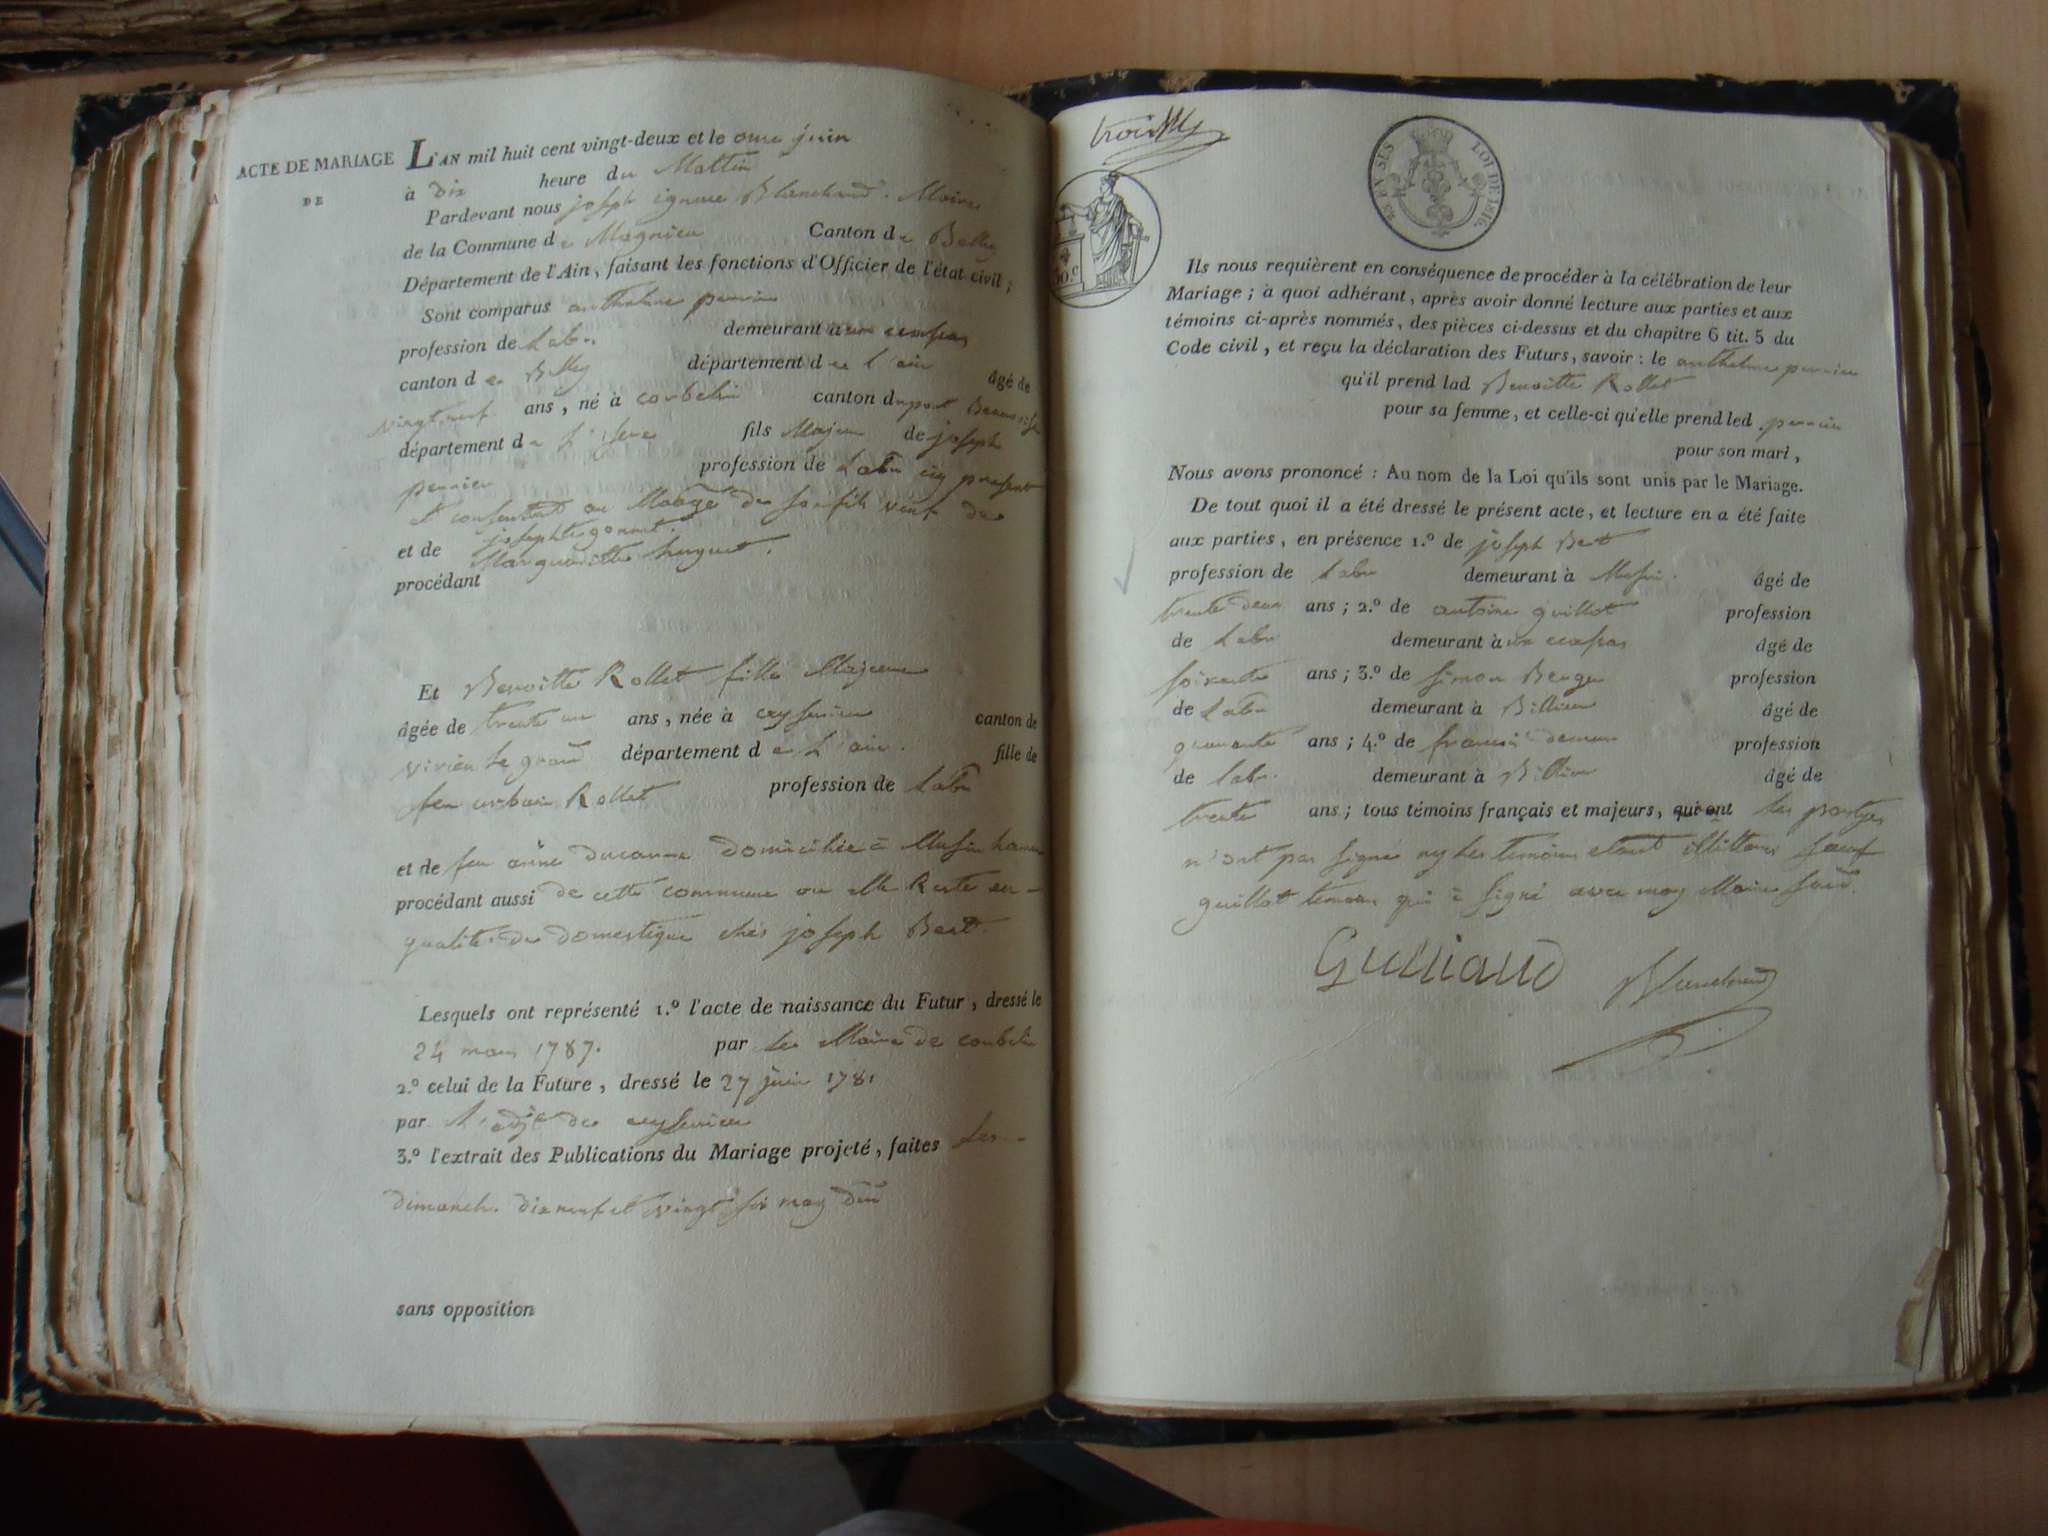 ACTE DE MARIAGE
A DE
L'AN mil huit cent vingt-deux et le onze juin
à dix heure du Mattin
Pardevant nous joseph ignace Blanchard Maire
de la Commune de Magnieu Canton de Belley
Département de l'Ain, faisant les fonctions d'Officier de l'état civil ;
Sont comparus anthelme perrier
profession de Labr. demeurant à
canton de Belley département de l'ain âgé de
vingt neuf ans, né à corbelin canton du pont Beauvoisin
département de L'isere fils Majeur de joseph
perrier profession de Labr icy present
et consentant au Mariage de son fils veuf de
josephte gonnet.
et de Margueritte huguet.
procédant
Et Benoitte Rollet fille Majeure
âgée de trente un ans, née à ceyserieu canton de
virieu le grand département de L'ain. fille de
feu urbain Rollet profession de Labr
et de feu anne ducarre domiciliée à Musin hameau
procédant aussi de cette commune ou elle Reste en
qualité de domestique chés joseph Bert.
Lesquels ont représenté 1.º l'acte de naissance du Futur, dressé le
24 mars 1787. par le Maire de corbelin
2.º celui de la Future, dressé le 27 juin 1781
par L'adjt de ceyserieu
3.º l'extrait des Publications du Mariage projeté, faites les
dimanche dix neuf et vingt six may dud
sans opposition
LOI DE 1816.
50 c.
Ils nous requièrent en conséquence de procéder à la célébration de leur
Mariage ; à quoi adhérant, après avoir donné lecture aux parties et aux
témoins ci-après nommés, des pièces ci-dessus et du chapitre 6 tit. 5 du
Code civil, et reçu la déclaration des Futurs, savoir : le anthelme perrier
qu'il prend lad Benoitte Rollet
pour sa femme, et celle-ci qu'elle prend led perrier
pour son mari,
Nous avons prononcé : Au nom de la Loi qu'ils sont unis par le Mariage.
De tout quoi il a été dressé le présent acte, et lecture en a été faite
aux parties, en présence 1.º de joseph Bert
profession de Labr demeurant à Musin. âgé de
trente deux ans ; 2.º de antoine guillot profession
de Labr demeurant à âgé de
soixante ans ; 3.º de simon Berger profession
de Labr demeurant à Billieu âgé de
quarante ans ; 4.º de francois profession
de labr. demeurant à Billieu âgé de
trente ans ; tous témoins français et majeurs, qui ont les partyes
n'ont pas signé ny les temoins etant illitteres sauf
guillot temoin qui a signé avec moy Maire sud.
Guilliaud Blanchard